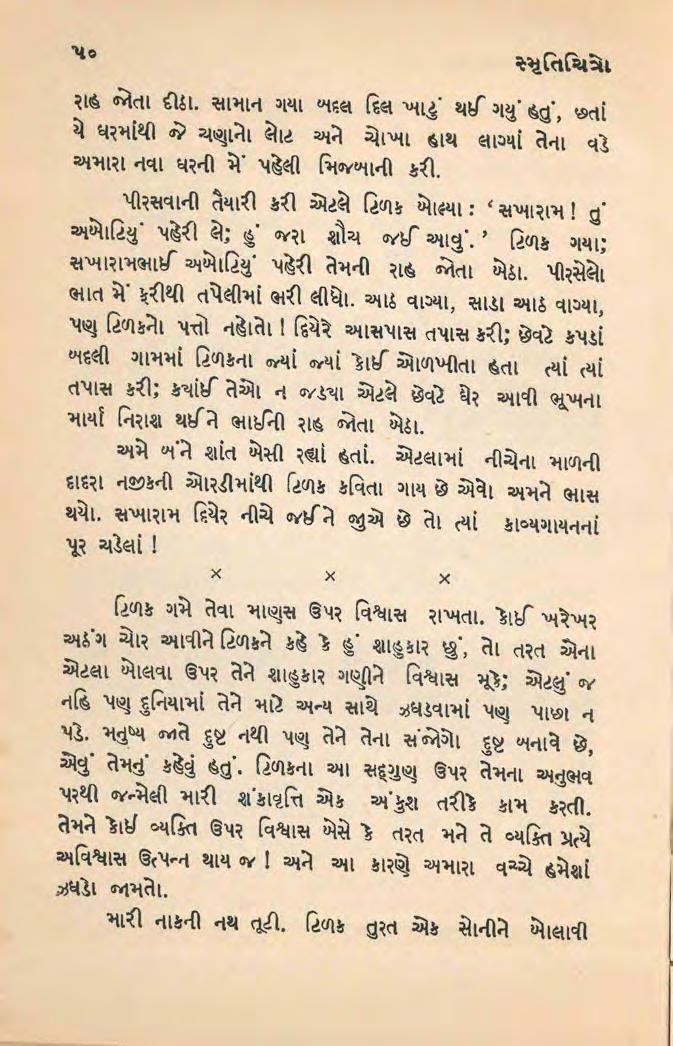 ૫૦
સ્મૃતિચિત્રો
રાહ જોતા દીઠા. સામાન ગયા બદલ દિલ ખાટું થઈ ગયું હતું, છતાં
યે ઘરમાંથી જે ચણાનો લોટ અને ચોખા હાથ લાગ્યાં તેના વડે
અમારા નવા ઘરની મેં પહેલી મિજબાની કરી.
પીરસવાની તૈયારી કરી એટલે ટિળક બોલ્યા : ‘સખારામ! તું
અબોટિયું પહેરી લે; હું જરા શૌચ જઈ આવું.’ ટિળક ગયા;
સખારામભાઈ અબોટિયું પહેરી તેમની રાહ જોતા બેઠા. પીરસેલો
ભાત મેં ફરીથી તપેલીમાં ભરી લીધો. આઠ વાગ્યા, સાડા આઠ વાગ્યા,
પણ ટિળકનો પત્તો નહોતો ! દિયેરે આસપાસ તપાસ કરી; છેવટે કપડાં
બદલી ગામમાં ટિળકના જ્યાં જ્યાં કોઈ ઓળખીતા હતા ત્યાં ત્યાં
તપાસ કરી; કયાંઈ તેઓ ન જડયા એટલે છેવટે ઘેર આવી ભૂખના
માર્યા નિરાશ થઈને ભાઈની રાહ જોતા બેઠા.
અમે બંને શાંત બેસી રહ્યાં હતાં. એટલામાં નીચેના માળની
દાદરા નજીકની ઓરડીમાંથી ટિળક કવિતા ગાય છે એવો અમને ભાસ
થયો. સખારામ દિયેર નીચે જઈને જુએ છે તો ત્યાં કાવ્યગાયનનાં
પૂર ચડેલાં !
× × ×
ટિળક ગમે તેવા માણસ ઉપર વિશ્વાસ રાખતા. કોઈ ખરેખર
અઠંગ ચોર આવીને ટિળકને કહે કે હું શાહુકાર છું, તો તરત એના
એટલા બોલવા ઉપર તેને શાહુકાર ગણીને વિશ્વાસ મૂકે; એટલું જ
નહિ પણ દુનિયામાં તેને માટે અન્ય સાથે ઝઘડવામાં પણ પાછા ન
પડે. મનુષ્ય જાતે દુષ્ટ નથી પણ તેને તેના સંજોગો દુષ્ટ બનાવે છે,
એવું તેમનું કહેવું હતું. ટિળકના આ સદ્દગુણ ઉપર તેમના અનુભવ
પરથી જન્મેલી મારી શંકાવૃત્તિ એક અંકુશ તરીકે કામ કરતી.
તેમને કોઈ વ્યક્તિ ઉપર વિશ્વાસ બેસે કે તરત મને તે વ્યક્તિ પ્રત્યે
અવિશ્વાસ ઉત્પન્ન થાય જ ! અને આ કારણે અમારા વચ્ચે હમેશાં
ઝઘડો જામતો.
મારી નાકની નથ તૂટી. ટિળક તુરત એક સોનીને બોલાવી